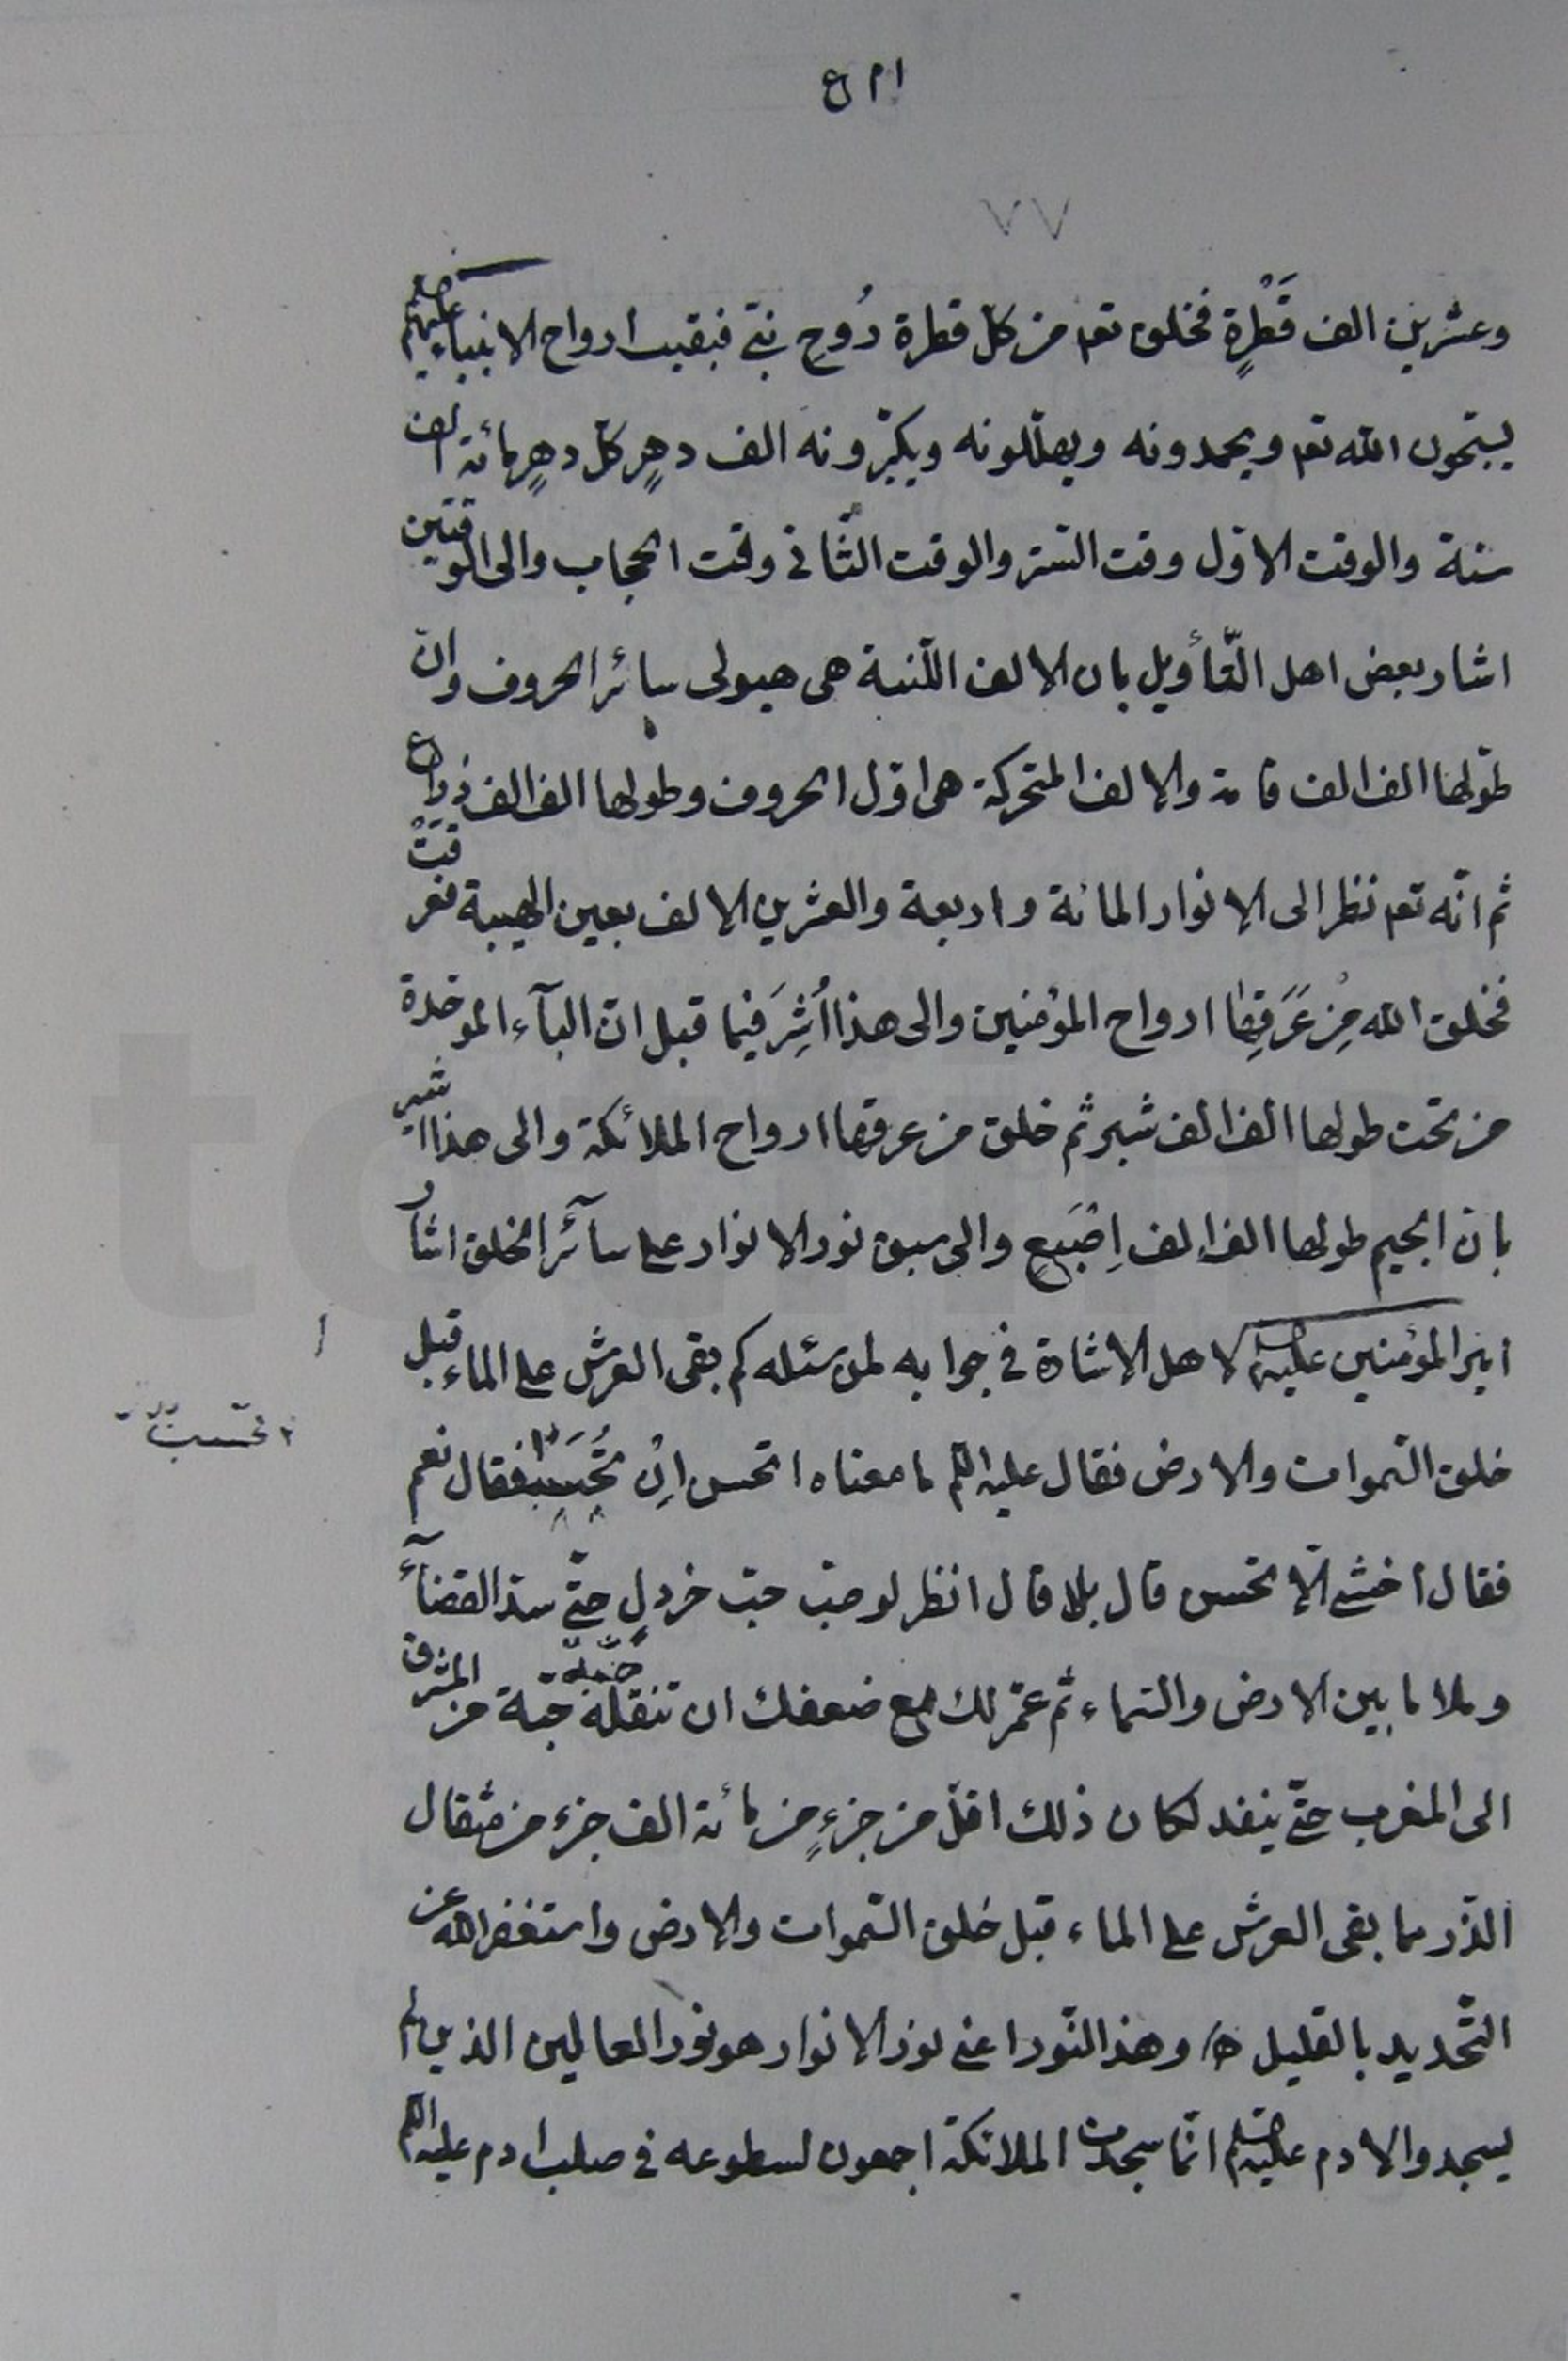 ٧٧
وعشرين الف قَطْرةٍ فخلق تعہ من كلّ قطرة رُوح نبيّ فبقيت ارواح الانبياء عليهم
يسبّحون الله تعہ ويحمدونه ويهلّلونه ويكبّرونه الف دهرٍ كلّ دهرٍ مائة الف
سنة والوقت الاوّل وقت السّتر والوقت الثّاني وقت الحجاب والى الوقتين
اشار بعض اهل التّأويل بان الالف اللّينة هى هيولى سائر الحروف وانّ
طولها الف الف قامة والالف المتحركة هى اوّل الحروف وطولها الف الف ذراع
ثم انّه تعہ نظر الى الانوار المائة واربعة والعشرين الالف بعين الهيبة فعرقَتْ
فخلق الله مِن عَرَقِها ارواح المؤمنين والى هذا اُشِرَ فيما قبل انّ البآء الموحّدة
من تحت طولها الف الف شبر ثم خلق من عرقها ارواح الملائكة والى هذا اشير
بانّ الجيم طولها الف الف اِصْبَع والى سبق نور الانوار على سآئر الخلق اشار
امير المؤمنين عليه السلام لاهل الاشارة في جوابه لمن سئله كم بقى العرش على الماء قبل
خلق السّموات والارض فقال عليه السلام ما معناه اتحسن اِن تُحسب فقال نعم
فقال اخشى الّا تحسن قال بلا قال انظر لو صبّ حبّ خردلٍ حتّى سدّ القضآء
وملا ما بين الارض والسّماء ثم عمّر لك مع ضعفك ان تنقله حبّة حبّة من المشرق
الى المغرب حتّى ينفد لكان ذلك اقلّ من جزءٍ من مائة الف جزء من مثقال
الذّر مما بقى العرش على الماء قبل خلق السّموات والارض واستغفر الله عن
التّحديد بالقليل وهذا النّور اعنى نور الانوار هو نور العالمين الذين لم
يسجدوا لادم عليه السلام انّما سجدت الملائكة اجمعون لسطوعه في صلب ادم عليه السلام